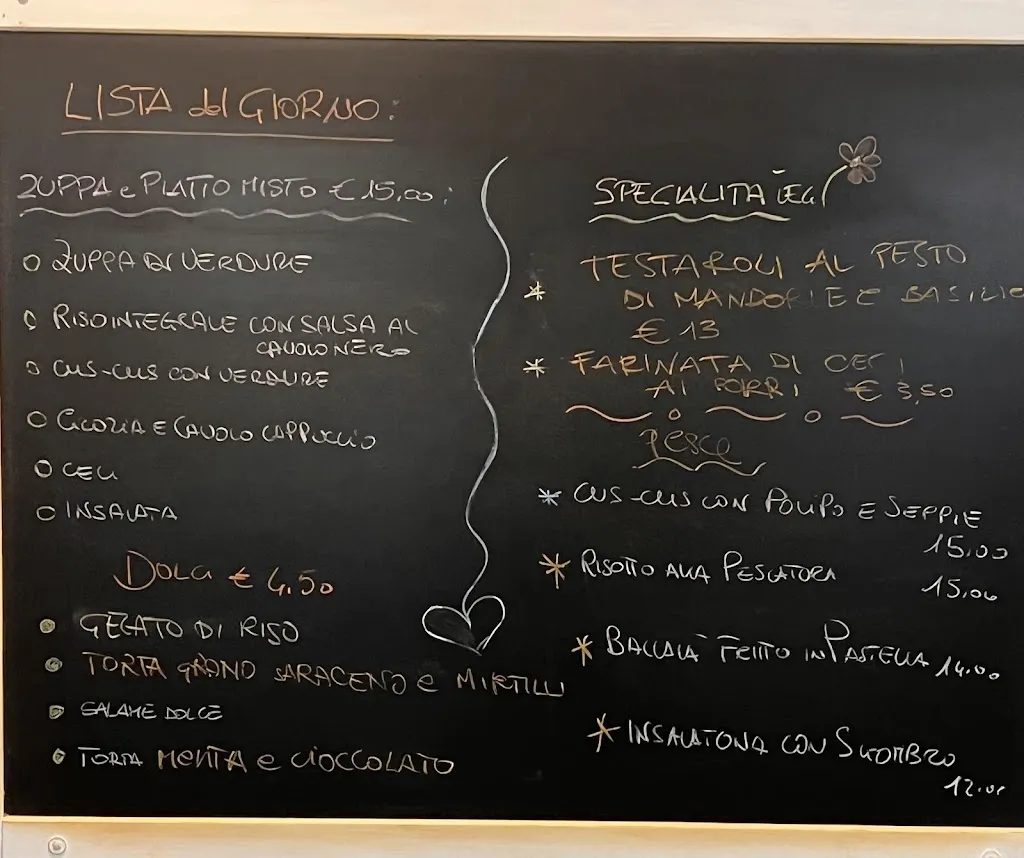 LISTA del GIORNO:
ZUPPA e PIATTO MISTO € 15,00:
ZUPPA DI VERDURE
RISO INTEGRALE CON SALSA AL
CAVOLO NERO
CUS-CUS CON VERDURE
CICORIA E CAVOLO CAPPUCCIO
CECI
INSALATA
DOLCI € 4.50
GELATO DI RISO
TORTA GRANO SARACENO e MIRTILLI
SALAME DOLCE
TORTA MENTA e CIOCCOLATO
SPECIALITÀ
TESTAROLI AL PESTO
DI MANDORLE E BASILIC
€ 13
FARINATA DI CECI
AI PORRI € 3,50
PESCE
CUS-CUS CON POLIPO E SEPPIE
15.00
RISOTTO ALLA PESCATORA 15.00
BACCALÀ FRITTO IN PASTELLA 14.00
INSALATONA CON SGOMBRO
12.00